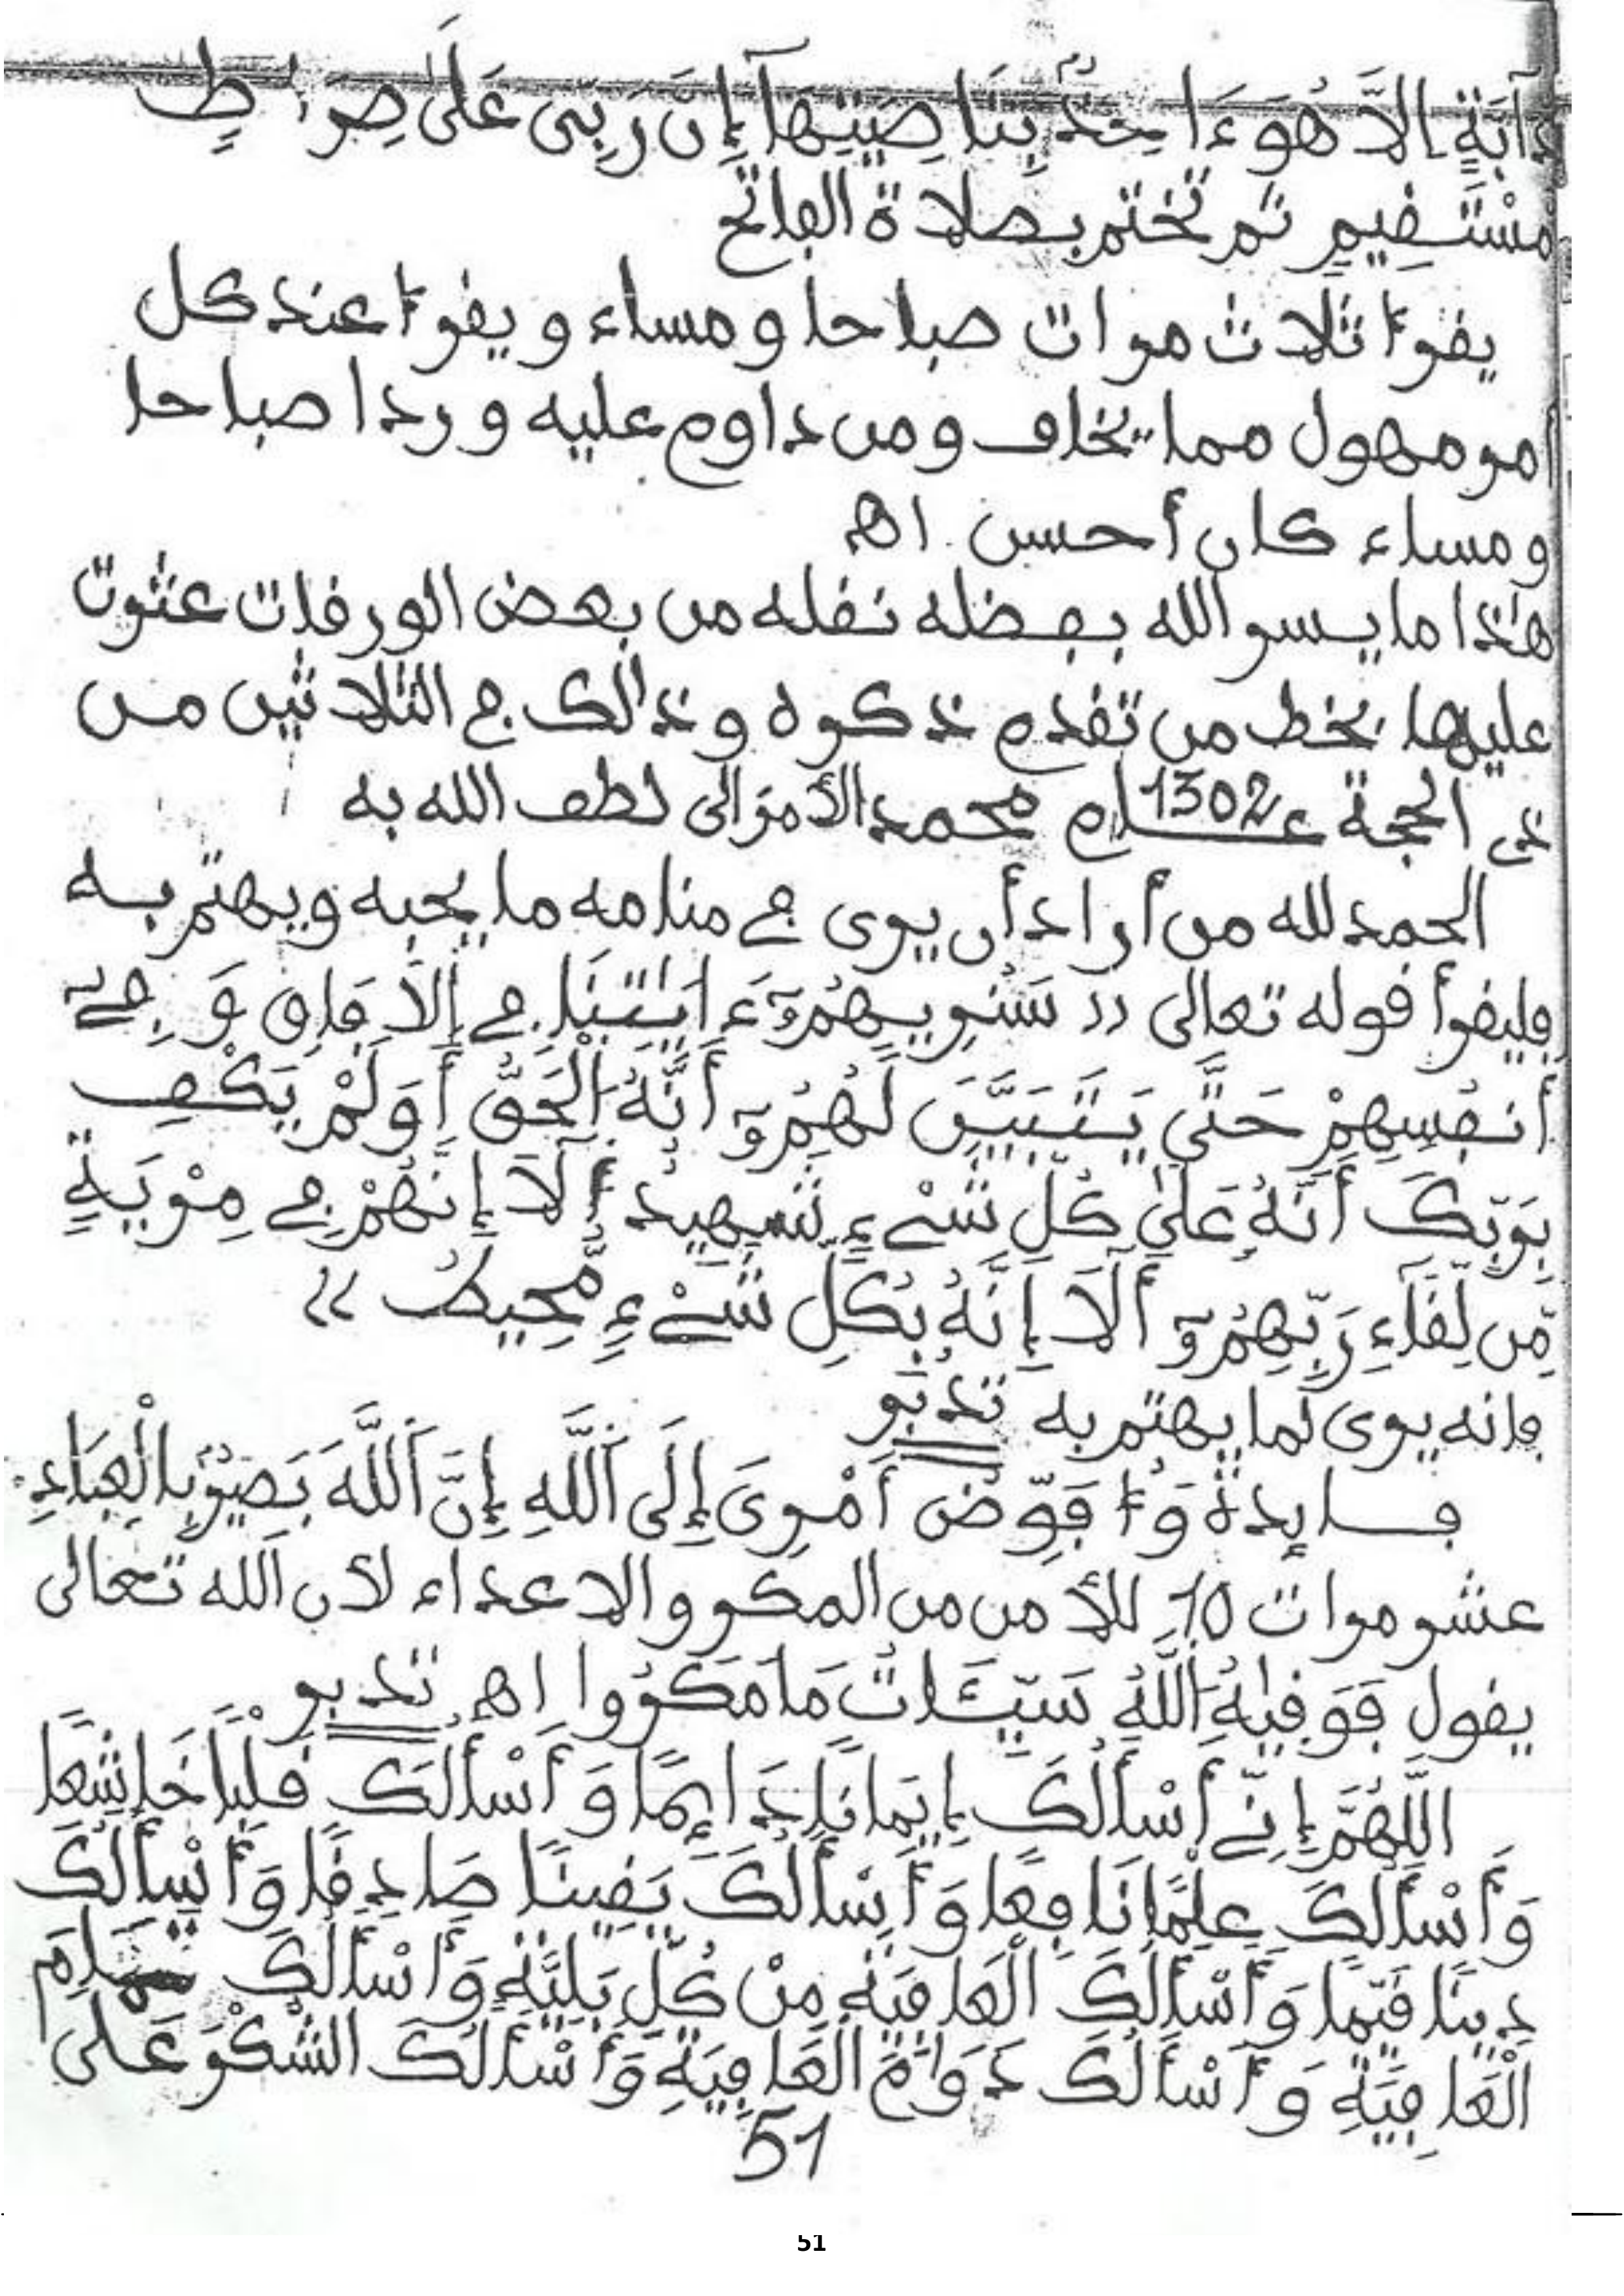 دَآبَّةٍ إِلَّا هُوَ ءَاخِذٌ بِنَاصِيَتِهَآ إِنَّ رَبِّى عَلَىٰ صِرَٰطٍ
مُّسْتَقِيمٍ ثم تختم بصلاة الفاتح
يقرأ ثلاث مرات صباحا ومساء ويقرأ عند كل
أمر مهول مما يخاف ومن داوم عليه وردا صباحا
ومساء كان أحسن. اهـ
هٰذا ما يسر الله بفضله نقله من بعض الورقات عثرت
عليها بخط من تقدم ذكره وذالك في الثلاثين من
ذى الحجة عام 1302 محمد الأمزالى لطف الله به
الحمد لله من أراد أن يرى في منامه ما يحبه ويهتم به
فليقرأ قوله تعالى (( سَنُرِيهِمُۥٓ ءَايَٰتِنَا فِي اِلَافَاقِ وَفِےٓ
أَنفُسِهِمْ حَتَّىٰ يَتَبَيَّنَ لَهُمُۥٓ أَنَّهُ اُلْحَقُّ أَوَلَمْ يَكْفِ
بِرَبِّكَ أَنَّهُۥ عَلَىٰ كُلِّ شَےْءٍ شَهِيدٌ أَلَآ إِنَّهُمْ فِي مِرْيَةٍ
مِّن لِّقَآءِ رَبِّهِمُۥٓ أَلَآ إِنَّهُۥ بِكُلِّ شَےْءٍ مُّحِيطٌ ))
فانه يرى لما يهتم به تَدَبَّر
فايدة وَأُفَوِّضُ أَمْرِىَ إِلَى اَللَّهِ إِنَّ اَللَّهَ بَصِيرٌ بِالْعِبَادِ
عشر مرات 10 للأمن من المكر والاعداء لأن الله تعالى
يقول فَوَقِيٰهُ اُللَّهُ سَيِّـَٔاتِ مَا مَكَرُوا اهـ تدبر
اللَّهُمَّ إِنِّي أَسْأَلُكَ إِيمَانًا دَائِمًا وَأَسْأَلُكَ قَلْبًا خَاشِعًا
وَأَسْأَلُكَ عِلْمًا نَافِعًا وَأَسْأَلُكَ يَقِينًا صَادِقًا وَأَسْأَلُكَ
دِينًا قَيِّمًا وَأَسْأَلُكَ الْعَافِيَةَ مِنْ كُلِّ بَلِيَّةٍ وَأَسْأَلُكَ تَمَامَ
الْعَافِيَةِ وَأَسْأَلُكَ دَوَامَ الْعَافِيَةِ وَأَسْأَلُكَ الشُّكْرَ عَلَى
51
51